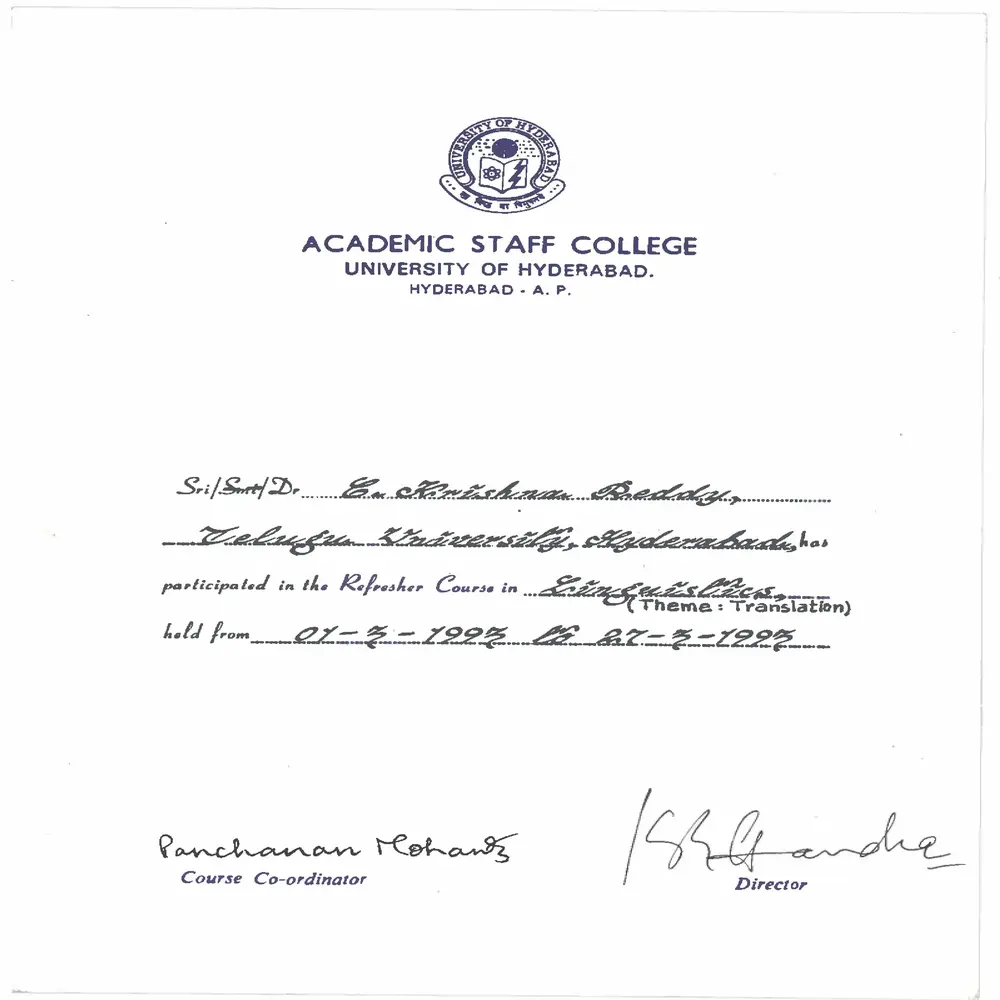 UNIVERSITY OF HYDERABAD
ACADEMIC STAFF COLLEGE
UNIVERSITY OF HYDERABAD.
HYDERABAD - A. P.
Sri/Smt/Dr C. Krishna Reddy,
Telugu University, Hyderabad, has
participated in the Refresher Course in Linguistics,
(Theme : Translation)
held from 01-3-1993 to 27-3-1993
Panchanan Mohanty
Course Co-ordinator
Director